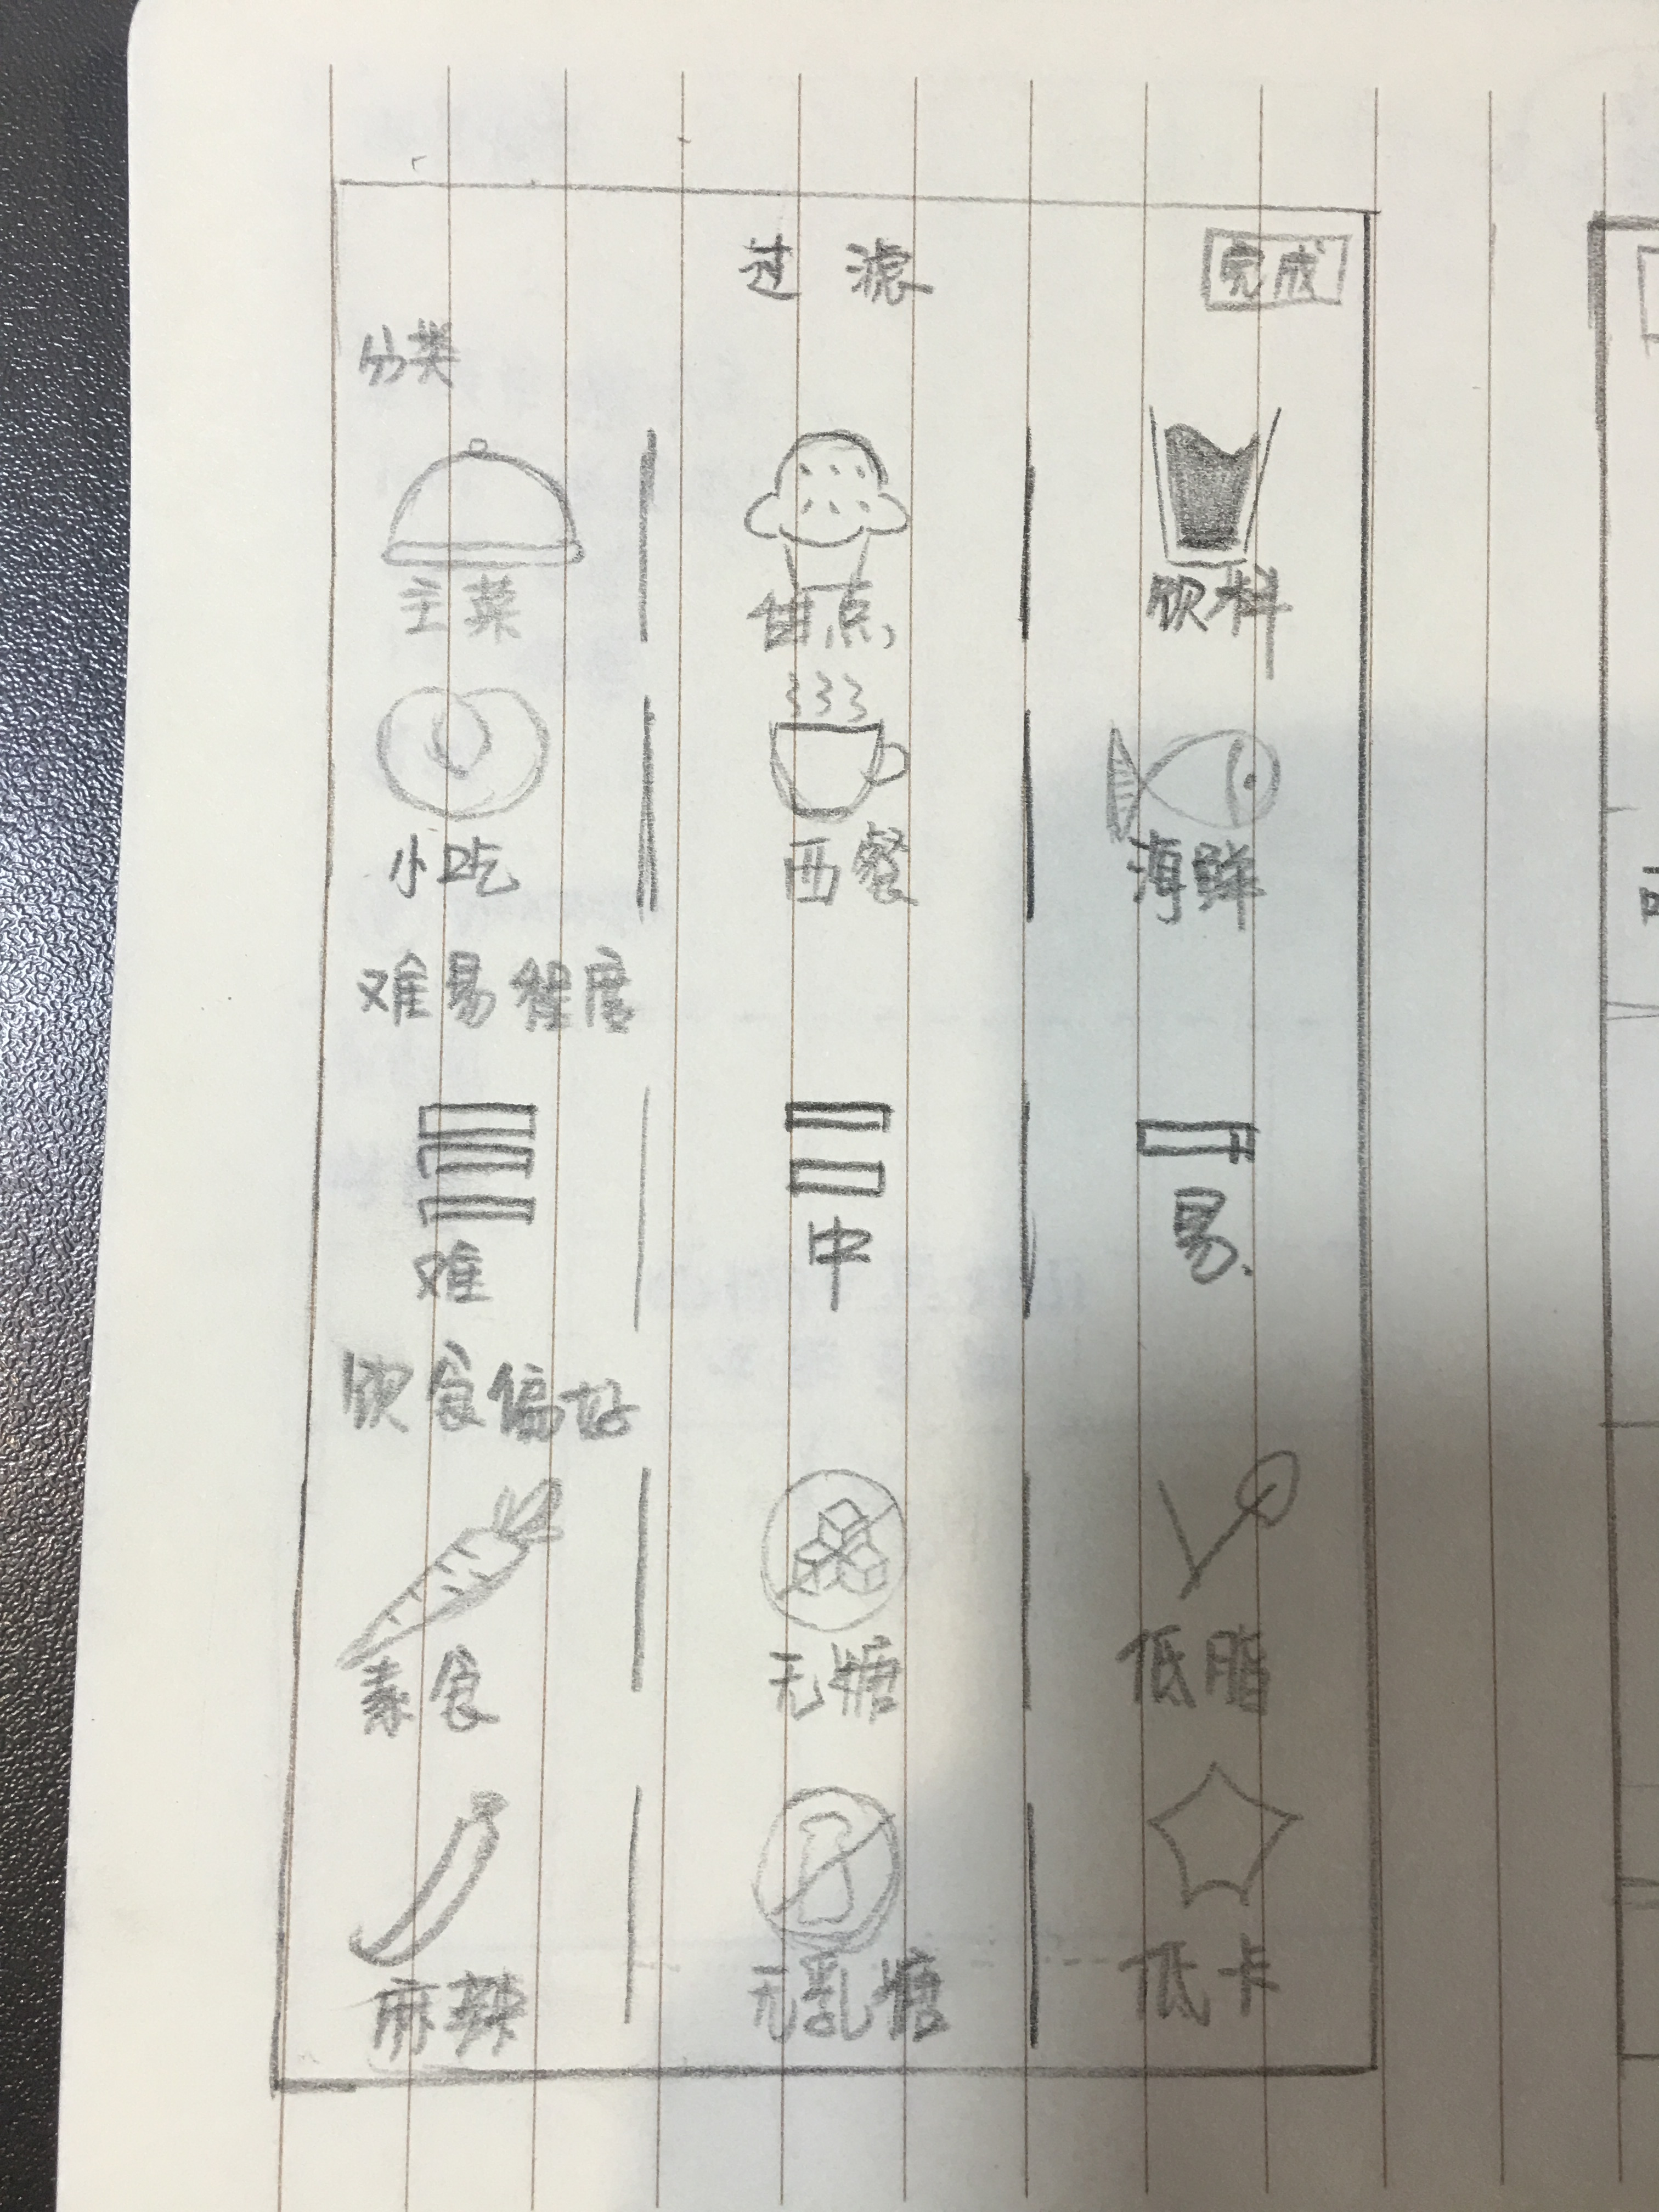 过滤 完成
分类
主菜 甜点 饮料
小吃 西餐 海鲜
难易程度
难 中 易
饮食偏好
素食 无糖 低脂
麻辣 无乳糖 低卡